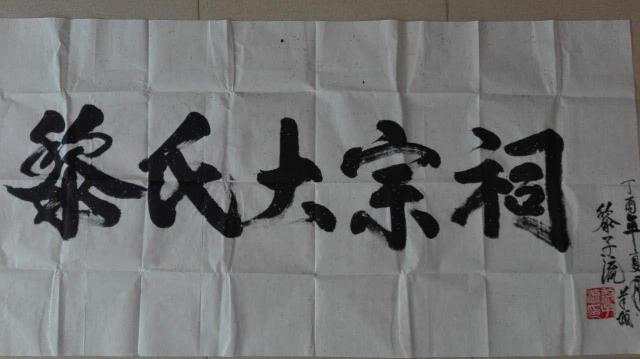 黎氏大宗祠
丁酉年夏月
黎子流